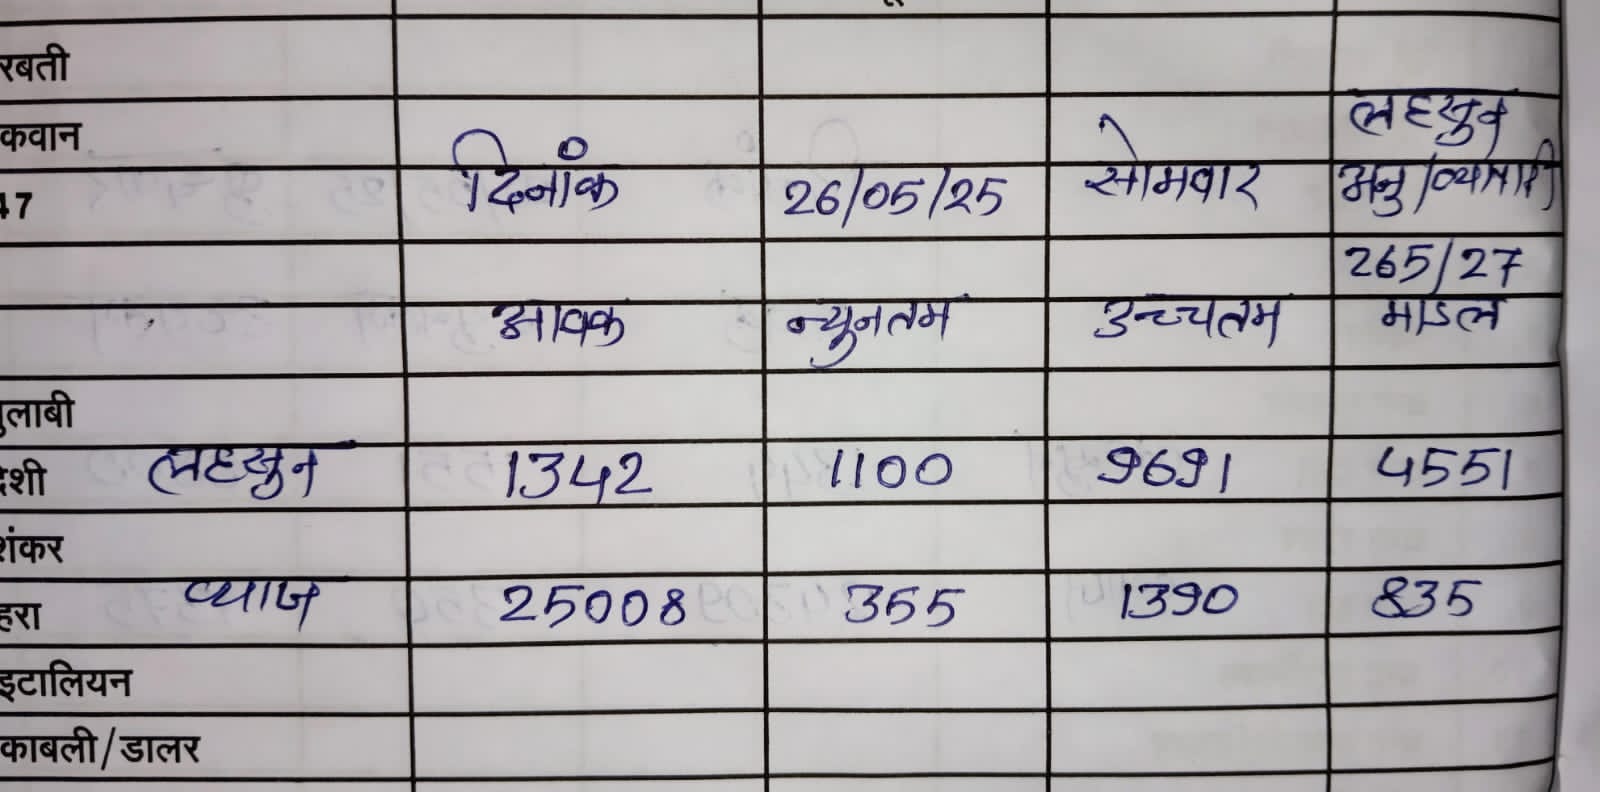 रबती
लहसुन
कवान
47 दिनांक 26/05/25 सोमवार अनु/व्यापारी
265/27
आवक न्युनतम उच्चतम माडल
गुलाबी
देशी लहसुन 1342 1100 9691 4551
शंकर
हरा प्याज 25008 355 1390 835
इटालियन
काबली/डालर